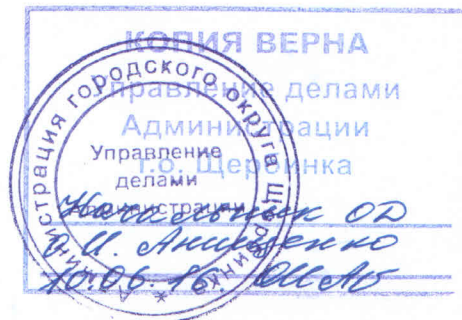 КОПИЯ ВЕРНА
Управление делами
Администрации
г.о. Щербинка
Администрация городского округа Щербинка
Управление
делами
администрации
Начальник ОД
Анищенко
10.06.16.